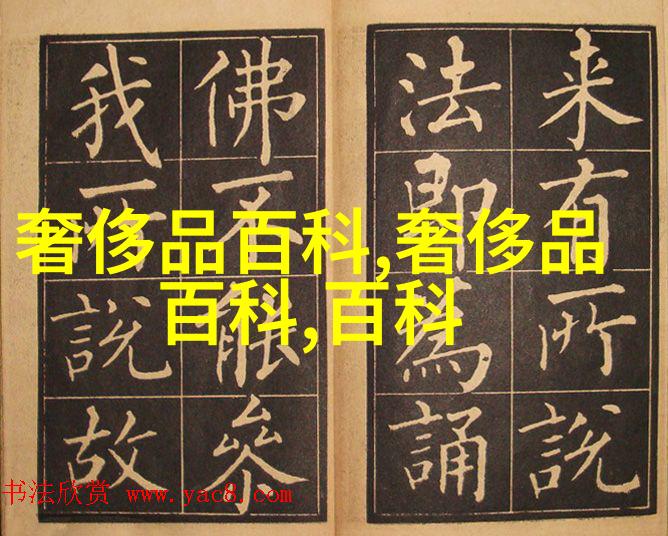 来有所說
法即為誦
佛不能叅
我說故
奢侈品百科,奢侈品
百科,百科
书法欣赏 www.yac8.com